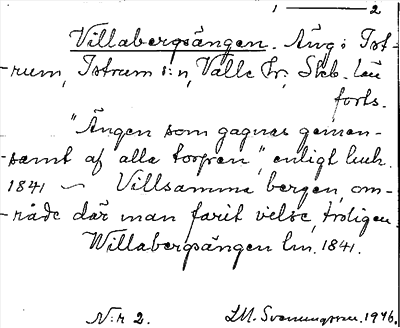 1 — 2
Villabergsängen. Äng i Ist-
-rum, Istrum s:n, Valle hr; Skb. län
forts.
"Ängen som gagnas gemen-
-samt af alla torpen", enligt
1841 — Villsamma bergen, om-
-råde där man farit vilse, troligen.
Willabergsängen lm. 1841.
N:r 2. I.M. Svenungsson. 1946.